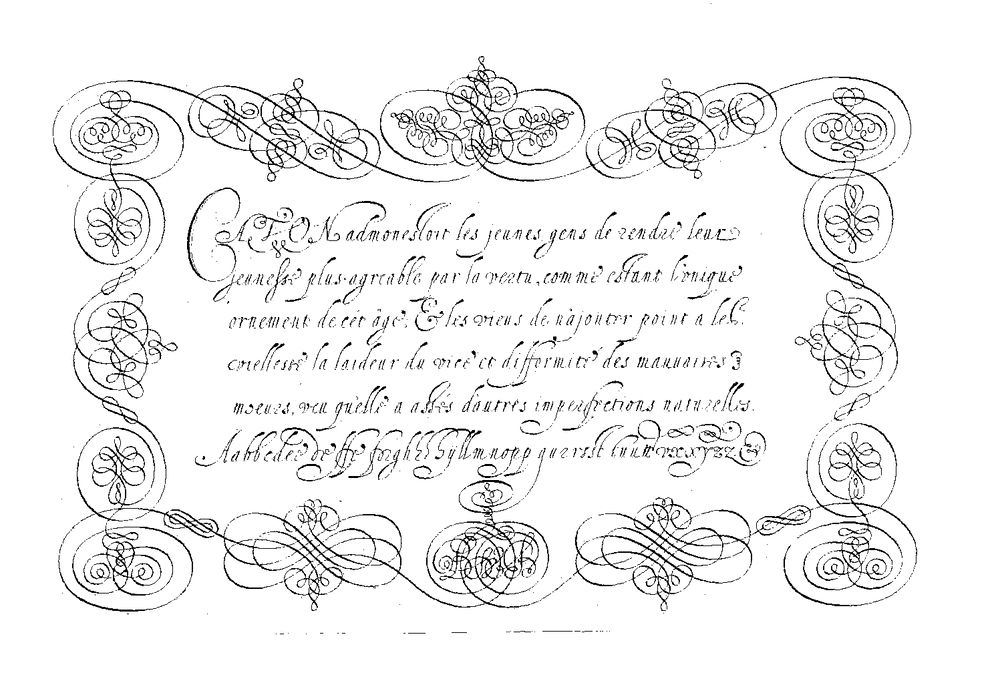 CATON admonestoit les jeunes gens de rendre leur
jeunesse plus agreable par la vertu, comme estant l'unique
ornement de cét âge. Et les vieus de n'ajouter point a le
viellesse la laideur du vice et difformité des mauvaises
moeurs, veu qu'elle a assés d'autres imperfections naturelles.